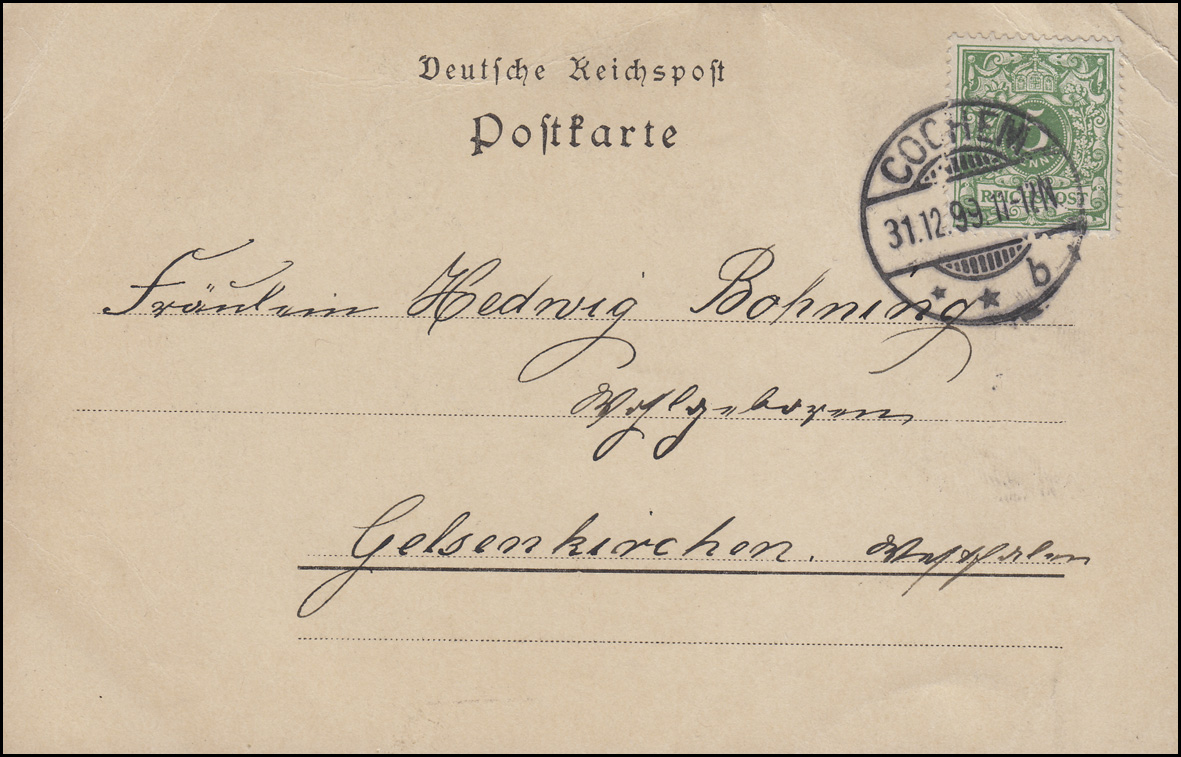 Deutsche Reichspost
Postkarte
5
PFENNIG
REICHSPOST
COCHEM
31.12.99. 11-12N
b
Fräulein Hedwig Bohning
Wohlgeboren
Gelsenkirchen. Westfalen